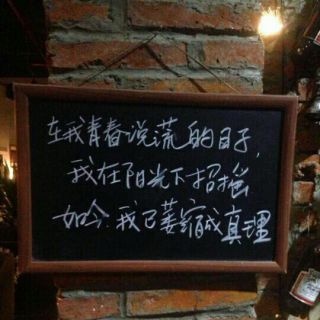 在我青春说谎的日子，
我在阳光下招摇
如今我已萎缩成真理